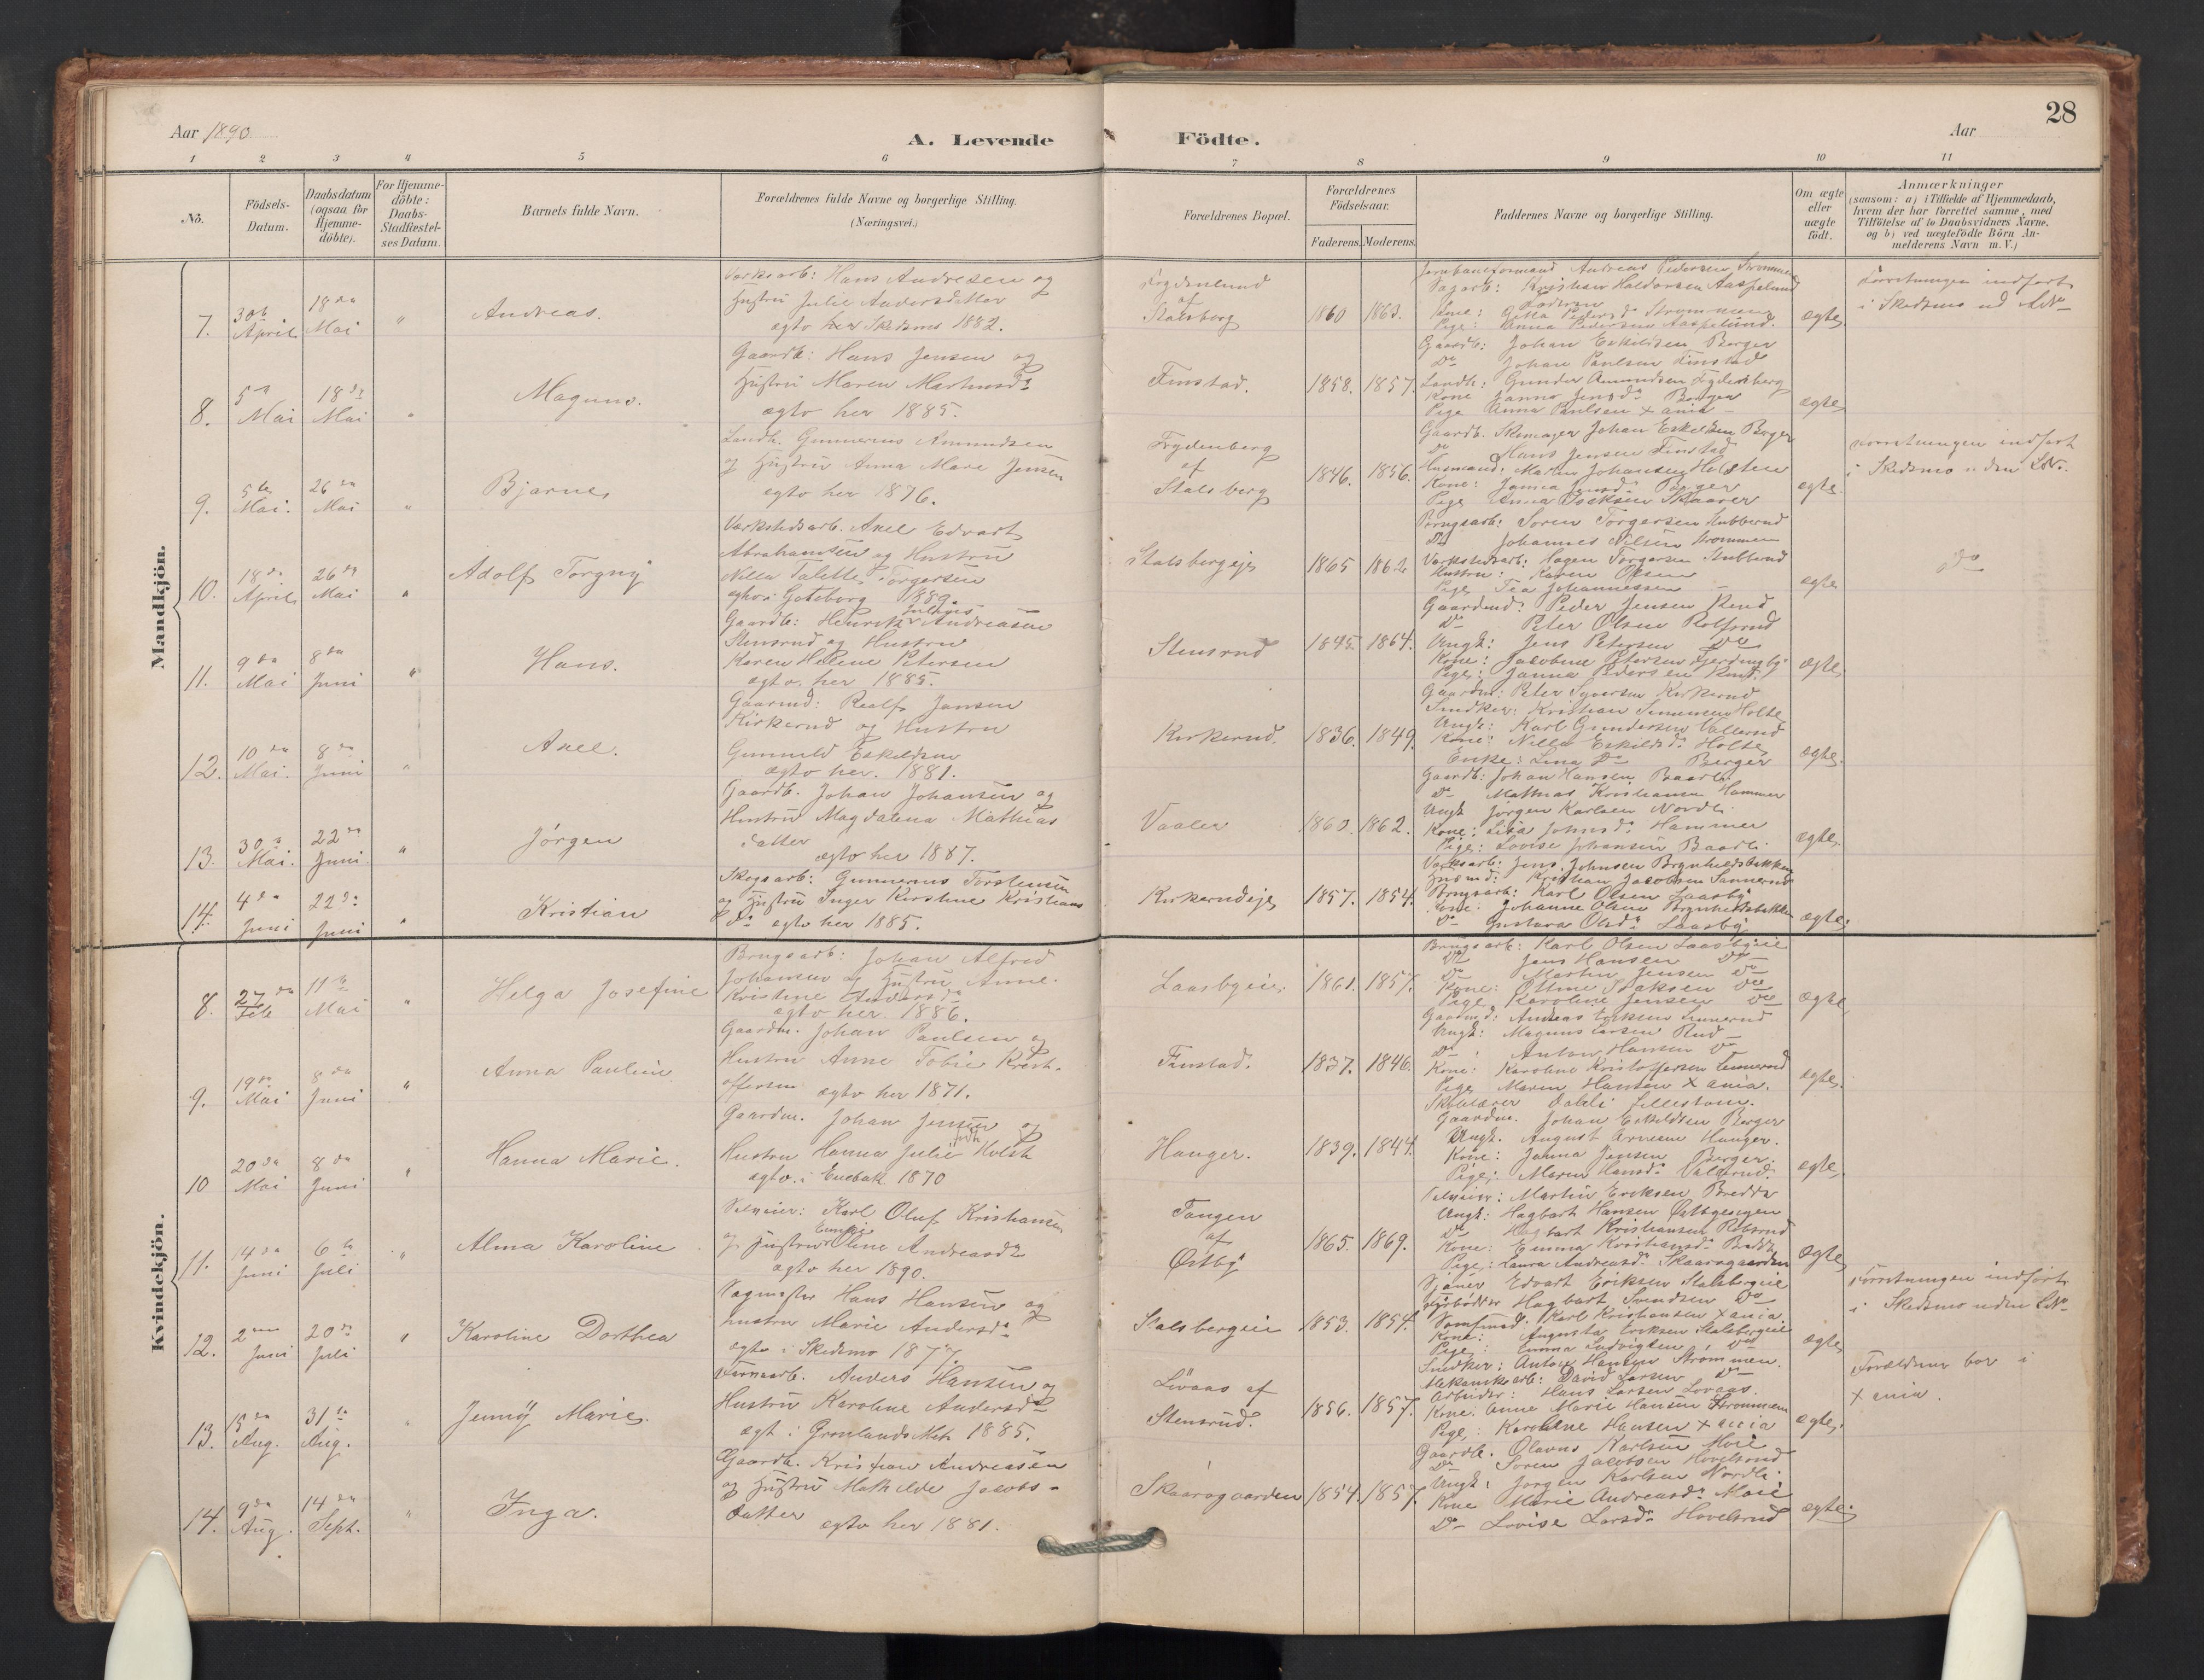 28
Aar 1890
A. Levende Födte.
Aar
1 2 3 4 5 6 7 8 9 10 11
No.
Födsels-
Datum.
Daabsdatum
(ogsaa for
Hjemme-
döbte).
For Hjemme-
döbte:
Daabs-
Stadfæstel-
ses Datum.
Barnets fulde Navn.
Forældrenes fulde Navne og borgerlige Stilling.
(Næringsvei.)
Forældrenes Bopæl.
Forældrenes
Födselsaar.
Faderens. Moderens.
Faddernes Navne og borgerlige Stilling.
Om ægte
eller
uægte
födt.
Anmærkninger
(saasom: a) i Tilfælde af Hjemmedaab,
hvem der har forrettet samme, med
Tilföielse af to Daabsvidners Navne.
og b) ved uægtefödte Börn An-
melderens Navn m. V.)
Mandkjön.
7.
30te April
18de Mai
"
Andreas.
Hans Andresen og
Hustru Julie Andersdatter
egtv her Skedsmo 1882.
Frydenlund
af
Stalsberg
1860 1863.
Andreas Pedersen Strommen
Kristian Haldorsen Aaspelund
Kone: Strommen
Pige: Anna Pedersen Aaspelund.
ægte
Forretningen indfort
i Skedsmo
8.
5te Mai
18de Mai
"
Magnus.
Gaardb: Hans Jensen og
Hustru Maren Martinsdr
egtv her 1885.
Finstad.
1858. 1857.
Gaardb: Johan Eskildsen Berger
Do Johan Paulsen Finstad
Landh: Gunder Amundsen Frydenberg
Kone Janna Jensdr Berger
Pige Anna Paulsen X ania
ægte
9.
5te Mai.
26de Mai
"
Bjarne
Landh. Gunnerius Amundsen
og Hustru Anna Mare Jensen
egtv her 1876.
Frydenberg
af
Stalsberg
1846. 1856.
Gaardb. Johan Eskildsen Berger
Do Hans Jensen Finstad
Husmand: Martin Johansen Holsten
Kone: Janna Jensdr Berger
Pige Anna Isaksen Skaarer
egte.
Forretningen indfort
i Skedsmo uden LNr.
10.
18de April
26de Mai
"
Adolf Torgny
Værkstedsarb. Axel Edvart
Abrahamsen og Hustru
Nilla Talette Torgersen
egtv i Goteborg 1889.
Stalsbergeje
1865 1862
Brugsarb: Soren Torgersen Stubberud
Do Johannes Nilsen Strommen
Værkstedsarb: Hagen Torgersen Stubberud
Hustru: Karen Olsen
Pige Tea Johannessen
egte
Do
11.
9de Mai
8de Juni
"
Hans.
Gaardb: Henrik Julius Andreasen
Stensrud og Hustru
Karen Helene Petersen
egtv. her 1885.
Stensrud
1845. 1864.
Gaardmd: Peder Jensen Rud
Do Peter Olsen Rolfsrud
Ungk: Jens Petersen Do
Kone: Jacobine Petersen
Pige: Janna Pedersen Rud.
ægte
12.
10de Mai.
8de Juni
"
Axel.
Gaarmd: Realf Jansen
Kirkerud og Hustru
Gunnild Eskildsen
egtv her. 1881.
Kirkerud.
1836. 1849.
Gaardm: Peter Syversen Kirkerud
Snedker: Kristian Simensen Holte
Ungk: Karl Gundersen Vallerud
Kone: Nilla Eskildsdr Holte
Enke: Lina Do Berger
ægte.
13.
30te Mai.
22de Juni
"
Jörgen
Gaardb. Johan Johansen og
Hustru Magdalena Mathias
datter
egtv her 1887.
Vaaler
1860. 1862.
Gaardb: Johan Hansen Baarli
Do Mathias Kristiansen Hammer
Ungk Jørgen Karlsen Nordli
Kone: Lisa Johnsdr Hammer
Pige: Lovise Johansen Baarli
ægte.
14.
4de Juni
22de Juni
"
Kristian
Skogsarb: Gunnerius Torstensen
og Hustru Inger Kirstine Kristians
Dr egtv her 1885.
Kirkerudeje
1857. 1854.
Værksarb: Jens Johnsen Brynhildsbakken
Kristian Jacobsen Sannerud
Brugsarb: Karl Olsen Laasby
Kone: Johanne Olsen Brynhildsbakken
Do Gustava Olsdr Laasby
ægte.
Kvindekjön.
8.
27de Feb
11te Mai
"
Helga Josefine
Brugsarb: Johan Alfred
Johansen og Hustru Anne.
Kristine Andersdr
egtv her. 1886.
Laasbyeie.
1861. 1857.
Brugsarb: Karl Olsen Laasbyeie
Do Jens Hansen Do
Do Martin Jensen Do
Kone: Ottine Isaksen Do
Pige, Karoline Jensen Do
ægte
9.
19de Mai
8de Juni
"
Anna Pauline
Gaardm. Johan Paulsen og
Hustru Anne Tobie Krist-
offersen egtv her 1871.
Finstad.
1837. 1846.
Gaardmd: Andreas Eriksen Tunnerud
Ungk: Magnus Larsen Rud
Do: Anton Hansen Do
Kone: Karoline Kristoffersen Tunnerud
Pige Maren Hansen X ania.
ægte.
10
20de Mai
8de Juni
"
Hanna Marie.
Gaardm. Johan Jensen og
Hustru Hanna Julie født Holst
egtv. i Enebak 1870
Hanger.
1839. 1844.
Skolelærer Dahli Lillestrøm.
Gaardm. Johan Eskildsen Berger
Ungk. August Arnesen Hanger.
Kone: Janna Jensen Berger.
Pige: Maren Hansdr Valderud.
egte.
11.
14de Juni
6te Juli
"
Alma Karoline
Selveier: Karl Oluf Kristiansen
og Hustru Oline Andreasdr
egtv her 1890.
Tangen
af
Østby
1865. 1869.
Selveier: Martin Eriksen Bredde
Ungk: Hagbart Hansen Østbyengen
Do Hagbart Kristiansen Robsrud
Kone: Emma Kristiansdr
Pige: Laura Andreasdr Skaarsgaarden
Ægte
12.
2den Juni
20de Juli
"
Karoline Dorthea
Sagmester Hans Hansen og
hustru Marie Andersdr
egtv i Skedsmo 1877.
Stalsbergeie
1853. 1854.
Edvart Eriksen Stalsbergeie
Hagbart Svendsen Do
Karl Kristiansen X ania
Kone: Augusta Eriksen Stalsbergeie
Pige: Emma Ludvigsen, Do
ægte
Forretningen indfort
i Skedsmo uden LNr
13.
15de Aug.
31te Aug.
"
Jenny Marie.
Jernarb. Anders Hansen og
Hustru Karoline Andersdr
egt i Gronlands Mek 1885.
Livaas af
Stensrud.
1856. 1857.
Snedker: Anton Hansen Strømmen.
Mekanskarb: David Larsen Do
Arbeider: Hans Larsen Lovaas.
Kone: Anne Marie Hansen Strommen
Pige: Karoline Hansen X ania
egte.
Forældrene bor i
X ania.
14.
9de Aug.
14de Sept.
"
Inga.
Gaardb. Kristian Andreasen
og Hustru Mathilde Jacobs-
datter egtv her 1881.
Skaarsgaarden
1854. 1857.
Gaardb. Olavus Karlsen Moie
Do Soren Jacobsen Hovelsrud
Ungk: Jorgen Karlsen Nordli
Kone Marie Andreasdr Moie
Do Lovise Larsdr Hovelsrud
ægte.